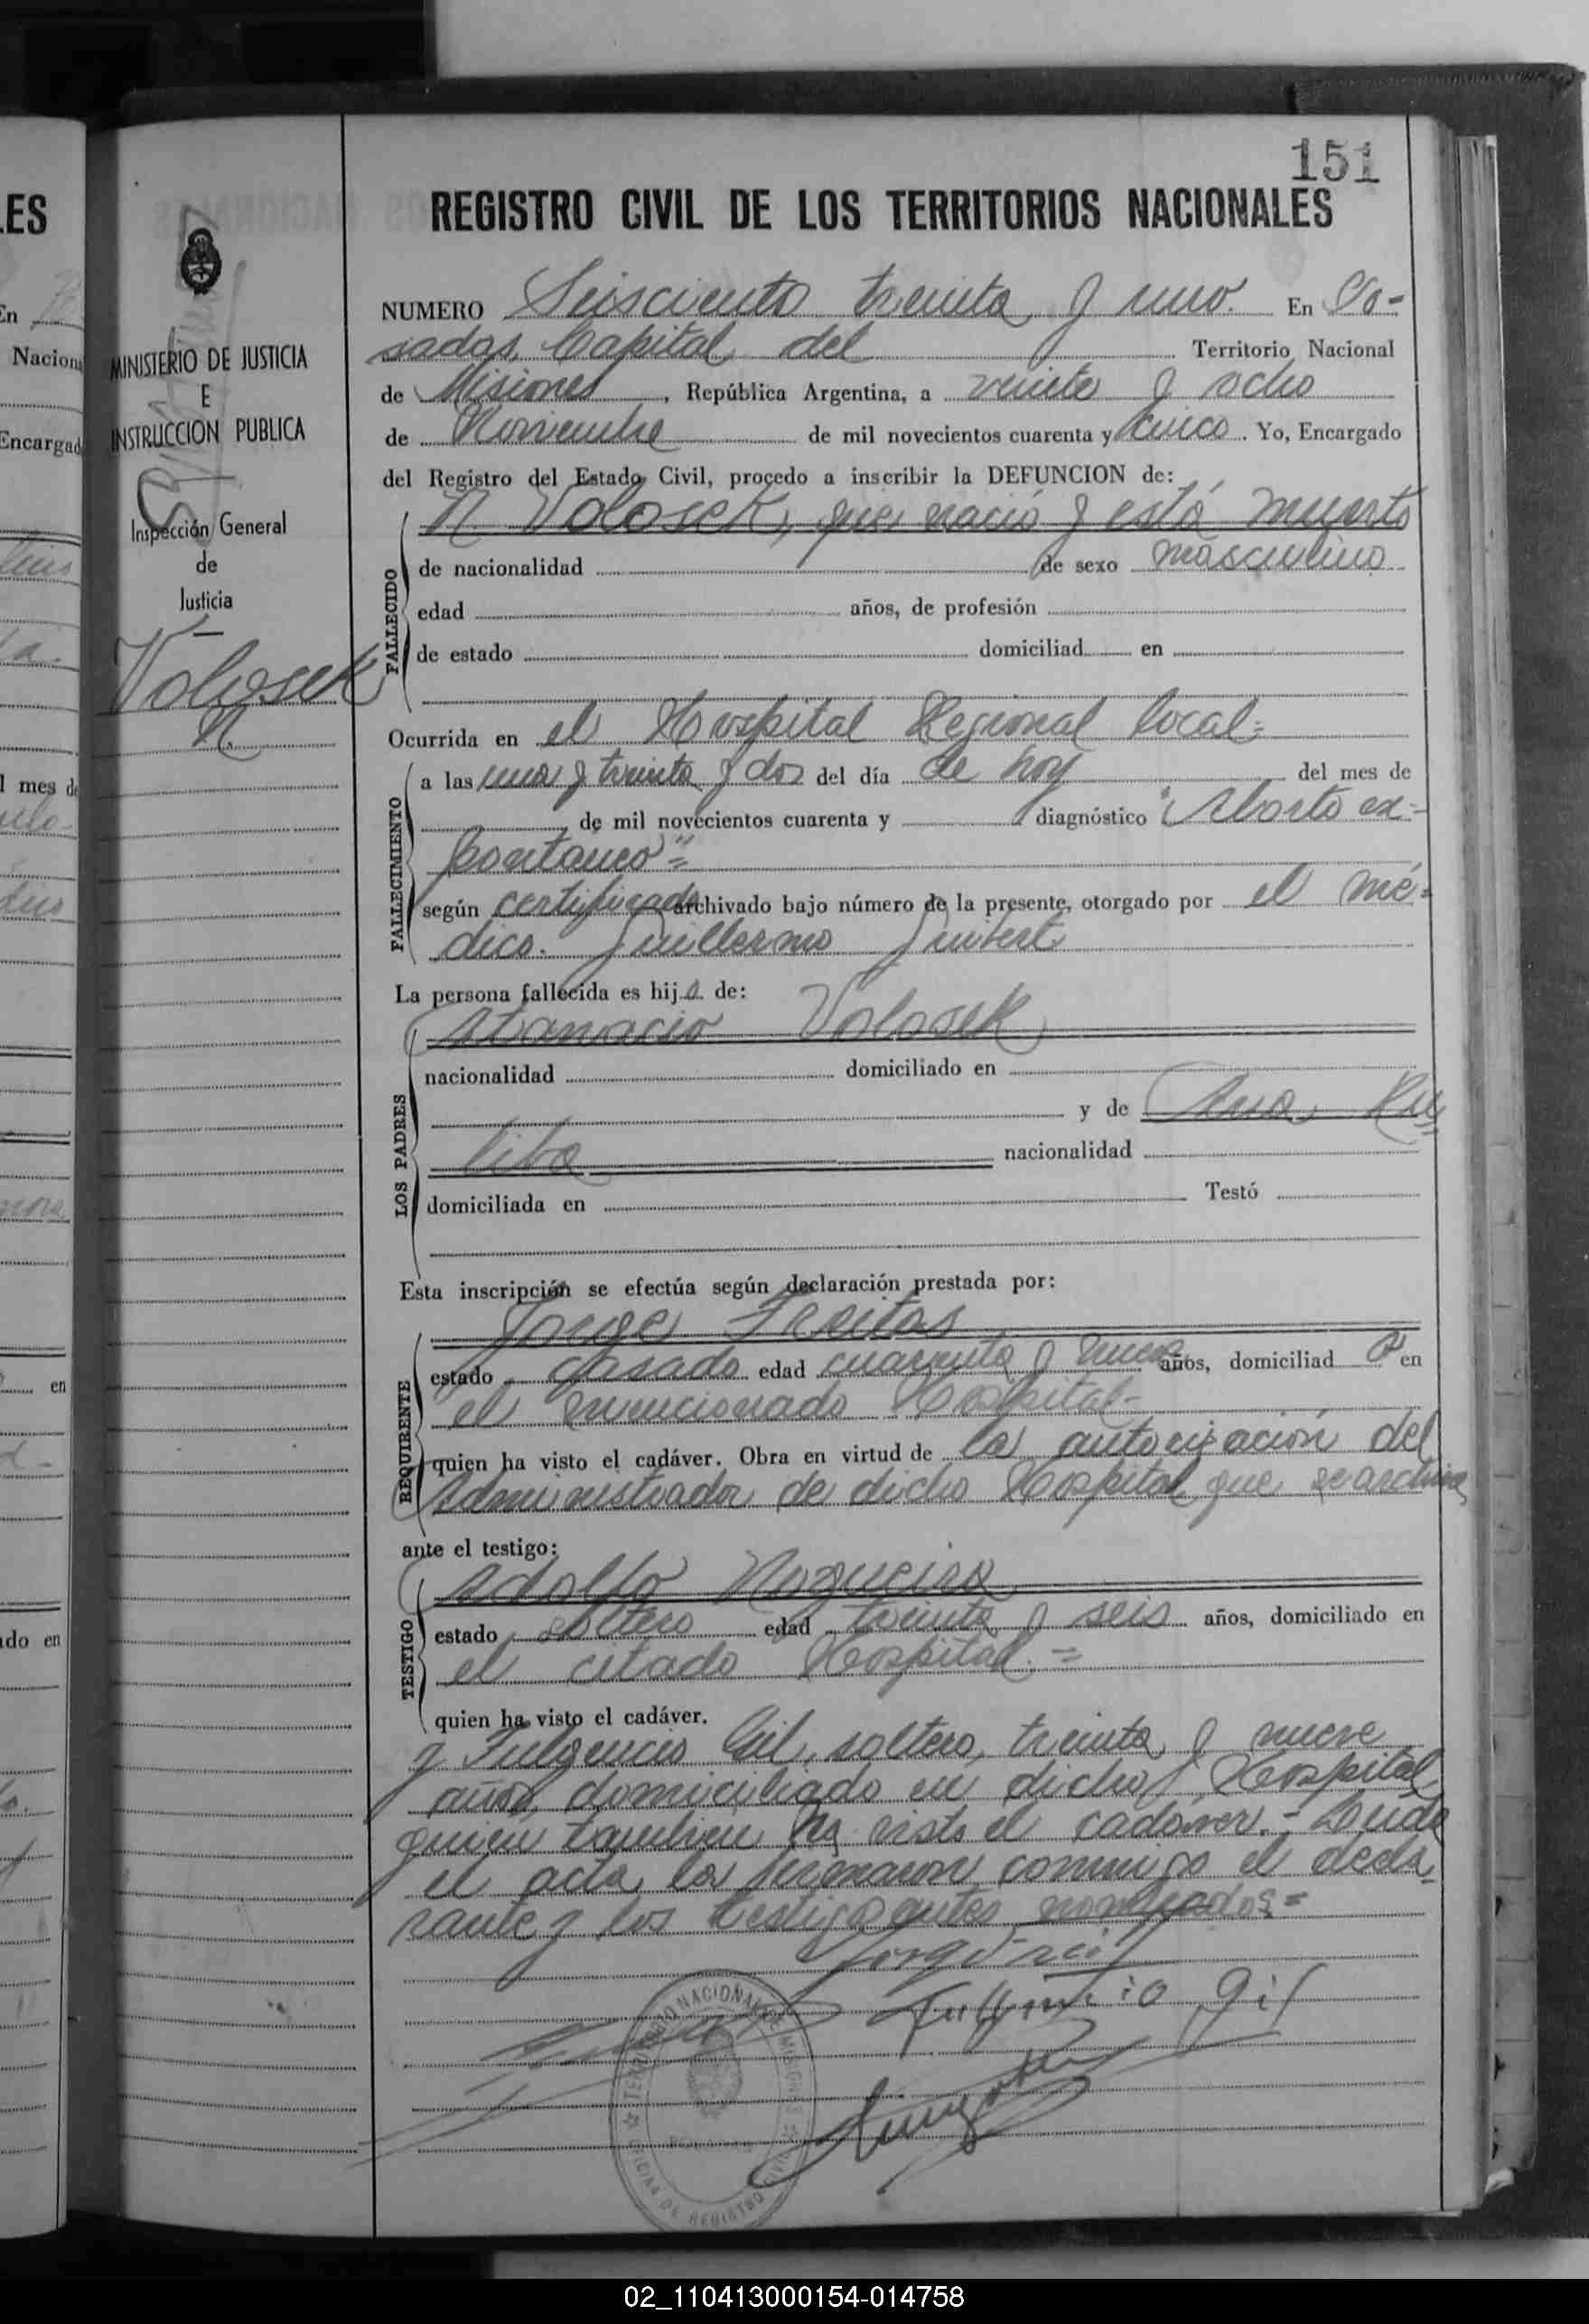 151
REGISTRO CIVIL DE LOS TERRITORIOS NACIONALES
NUMERO Seisciento treinta y uno. En Po-
sadas, Capital del Territorio Nacional
de Misiones, República Argentina, a veinte y ocho
de Noviembre de mil novecientos cuarenta y cinco. Yo, Encargado
del Registro del Estado Civil, procedo a inscribir la DEFUNCION de:
N. Volosek, que nació y está muerto
FALLECIDO
de nacionalidad de sexo masculino
edad años, de profesión
de estado domiciliad en
Ocurrida en el Hospital Regional local=
FALLECIMIENTO
a las una y treinta y dos del día de hoy del mes de
de mil novecientos cuarenta y diagnóstico "Aborto es-
pontaneo"=
según certificado archivado bajo número de la presente, otorgado por el mé=
dico. Guillermo
La persona fallecida es hijo de:
LOS PADRES
Atanacio Volosek
nacionalidad domiciliado en
y de Ana Ku=
liba
nacionalidad
domiciliada en Testó
Esta inscripción se efectúa según declaración prestada por:
REQUIRENTE
Jorge Freitas
estado casado edad cuarenta y nueve años, domiciliad o en
el mencionado Hospital-
quien ha visto el cadáver. Obra en virtud de la autorización del
Administrador de dicho Hospital que se archiva
ante el testigo:
TESTIGO
Adolfo Nogueira
estado soltero edad treinta y seis años, domiciliado en
el citado Hospital.=
quien ha visto el cadáver.
y Fulgencio Gil, soltero, treinta y nueve
años, domiciliado en dicho Hospital
quien tambien ha visto el cadáver.- Leida
el acta, la firmaron conmigo el decla=
rante y los testigos antes nombrados=
Fulgencio Gil
TERRITORIO NACIONAL DE MISIONES
OFICINA DE REGISTRO CIVIL
MINISTERIO DE JUSTICIA
E
INSTRUCCION PUBLICA
Inspección General
de
Justicia
Volosek
N.
ES
En
Nacion
Encargad
l mes de
en
do en
02_110413000154-014758